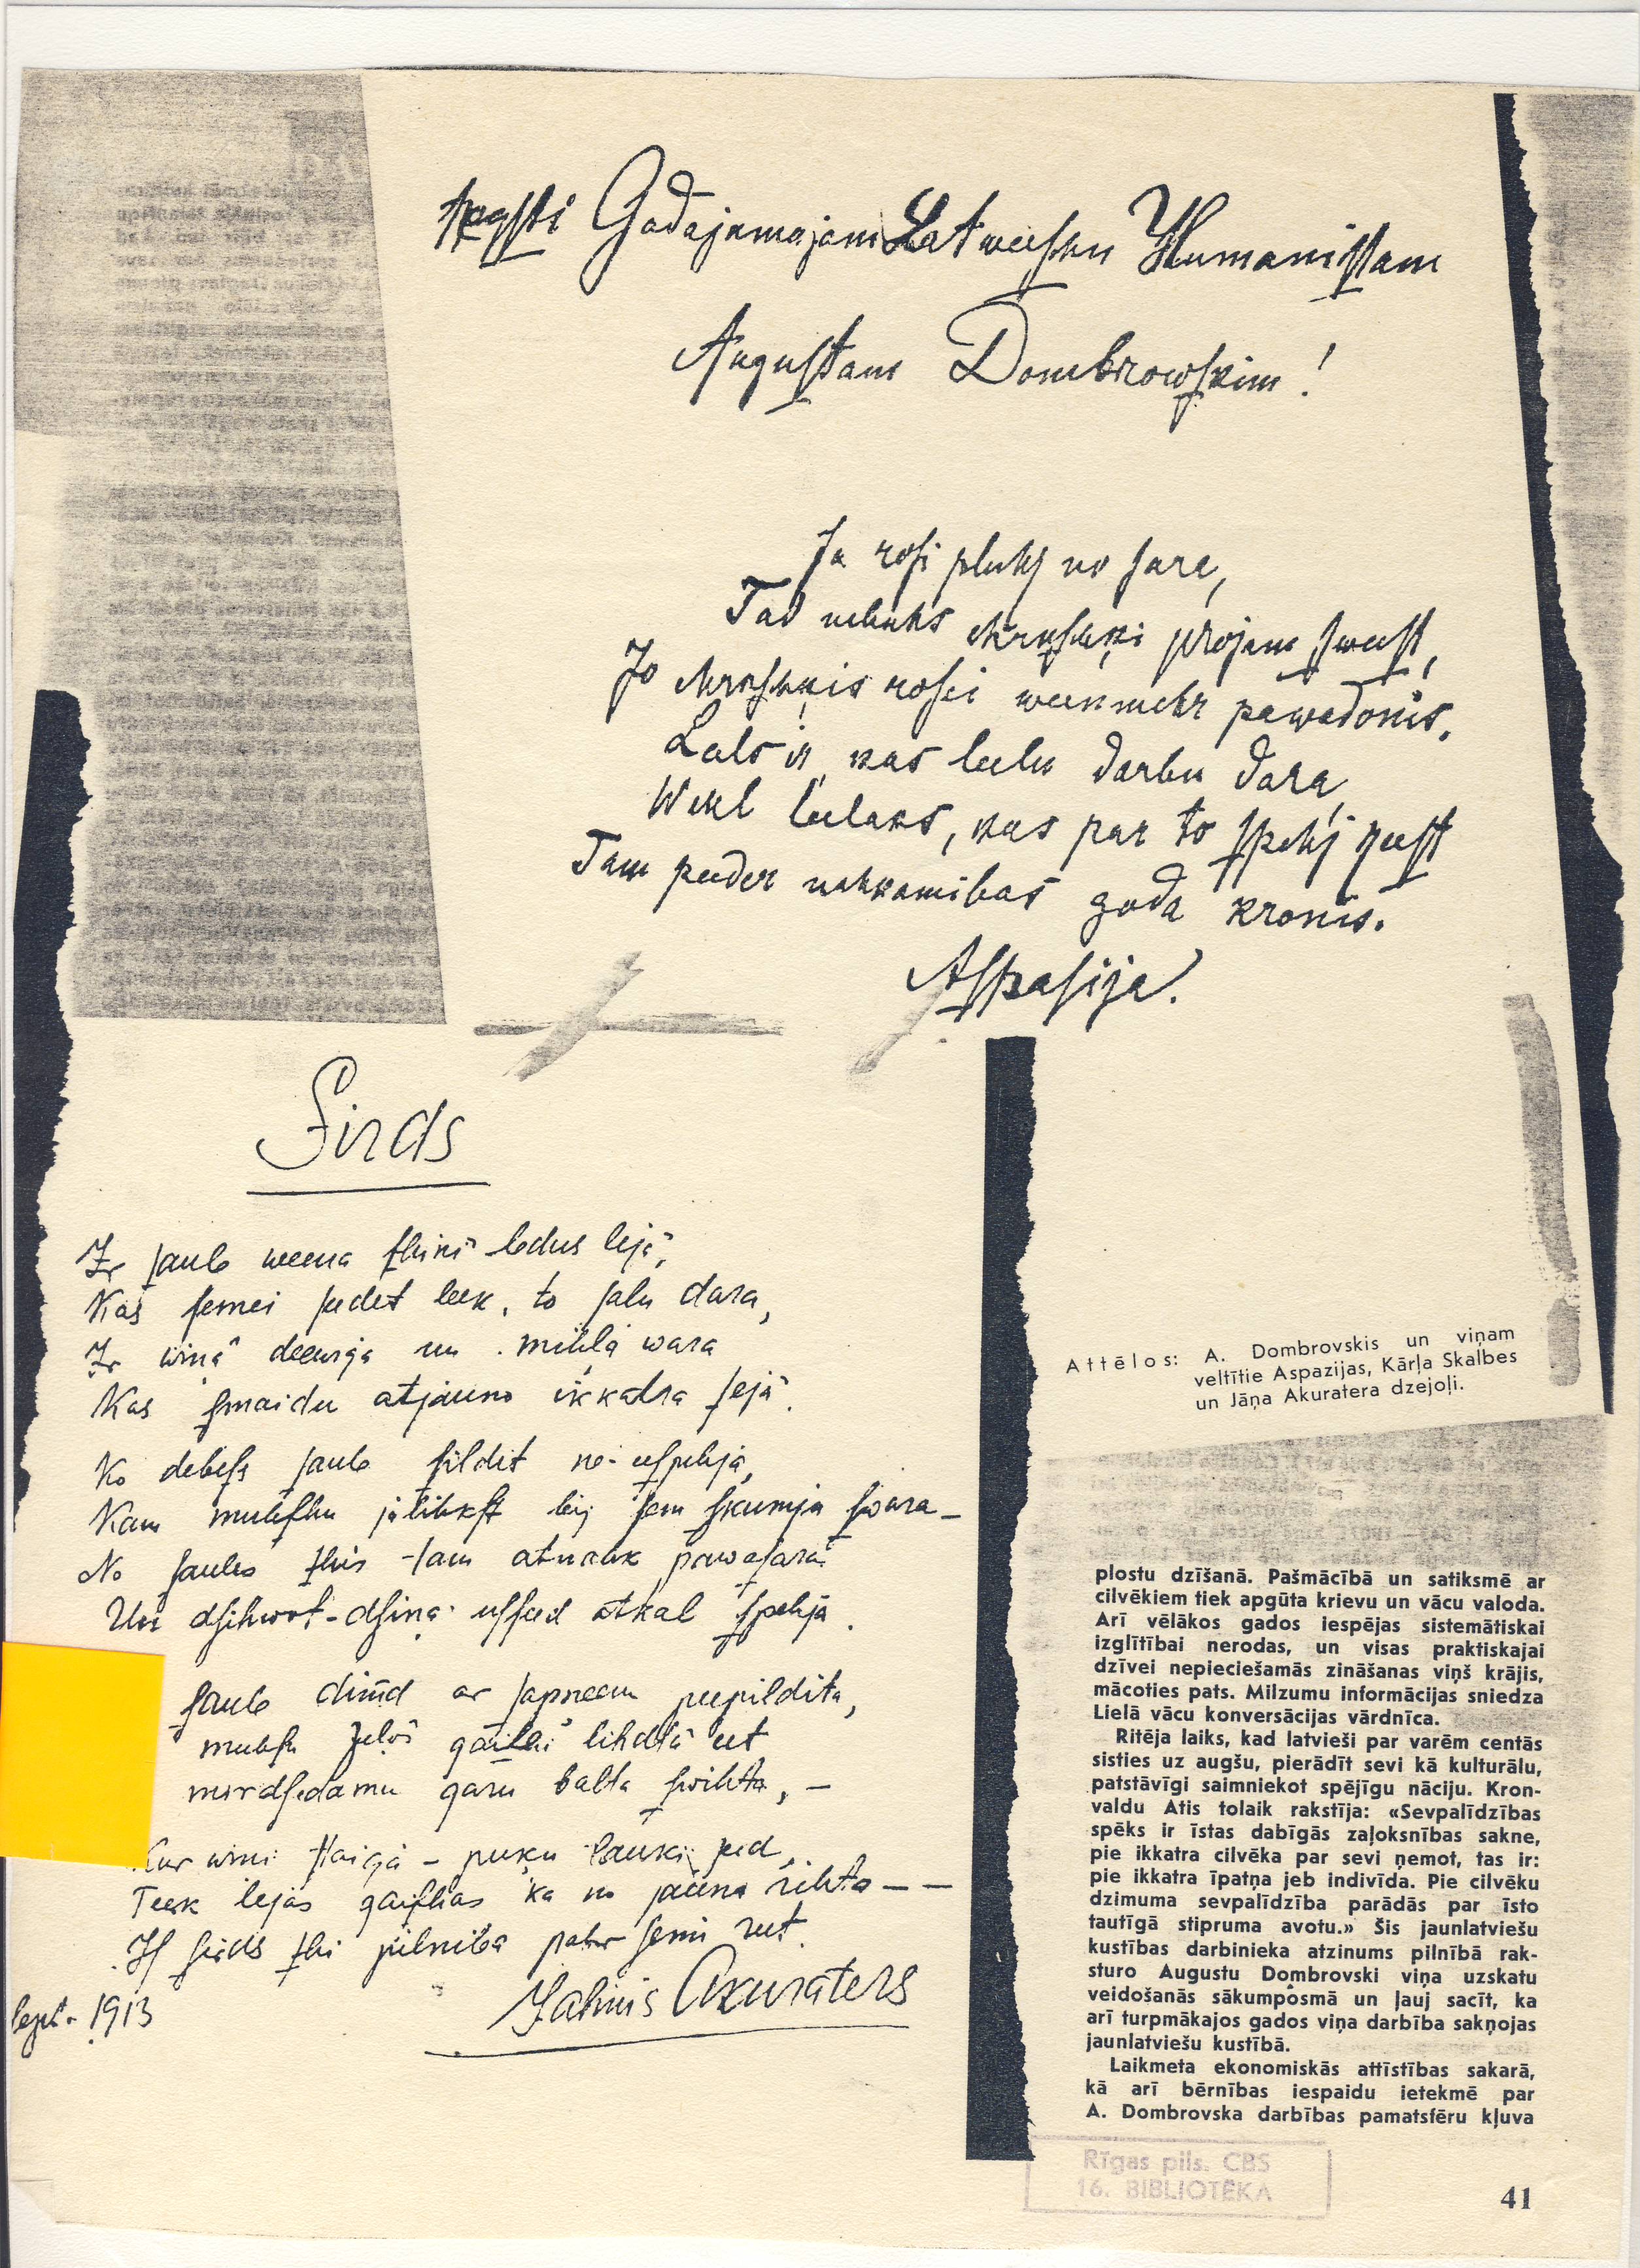 Godajamajam Latweeschu Humanistam
Augustam Dombrowskim!
Ja rosi pluhz no sara,
Tad nebuhs ehrkschķi projam sweest,
Jo ehrkschķis rosei weenmehr pawadonis.
Leels ir, kas leelu darbu dara,
Wehl leelaks, kas par to spehj zeest
Tam peeder nahkamibas goda kronis.
Aspasija.
Sirds
Ir saule weena schini ledus lejā,
Kas semei seedet leek, to salu dara,
Ir wiņā deewiga un mihļa wara
Kas smaidu atjauno ikkatra sejā.
Ko debess saule sildit ne-eespehja,
Kam muhscham jālihkst bij sem skumja swara –
No saules schis tam atnahk pawasarā
Un dsihwot-dsiņa usseed atkal spehjā.
Saule dimd ar sapņeem peepildita,
muhsu ceļos gaitai lihdsā eet
mirdsedamu garu balta swihta, –
Kur wini staigā – puķu lauki seed,
Teek lejas gaischas kā no jauna rihta – –
Is sirds schi pilnibā pahr semi reet.
Jahnis Akuraters
Sept. 1913
Attēlos: A. Dombrovskis un viņam
veltītie Aspazijas, Kārļa Skalbes
un Jāņa Akuratera dzejoļi.
plostu dzīšanā. Pašmācībā un satiksmē ar
cilvēkiem tiek apgūta krievu un vācu valoda.
Arī vēlākos gados iespējas sistemātiskai
izglītībai nerodas, un visas praktiskajai
dzīvei nepieciešamās zināšanas viņš krājis,
mācoties pats. Milzumu informācijas sniedza
Lielā vācu konversācijas vārdnīca.
Ritēja laiks, kad latvieši par varēm centās
sisties uz augšu, pierādīt sevi kā kulturālu,
patstāvīgi saimniekot spējīgu nāciju. Kron-
valdu Atis tolaik rakstīja: «Sevpalīdzības
spēks ir īstas dabīgās zaļoksnības sakne,
pie ikkatra cilvēka par sevi ņemot, tas ir:
pie ikkatra īpatņa jeb indivīda. Pie cilvēku
dzimuma sevpalīdzība parādās par īsto
tautīgā stipruma avotu.» Šis jaunlatviešu
kustības darbinieka atzinums pilnībā rak-
sturo Augustu Dombrovski viņa uzskatu
veidošanās sākumposmā un ļauj sacīt, ka
arī turpmākajos gados viņa darbība sakņojas
jaunlatviešu kustībā.
Laikmeta ekonomiskās attīstības sakarā,
kā arī bērnības iespaidu ietekmē par
A. Dombrovska darbības pamatsfēru kļuva
Rīgas pils. CBS
16. BIBLIOTĒKA
41